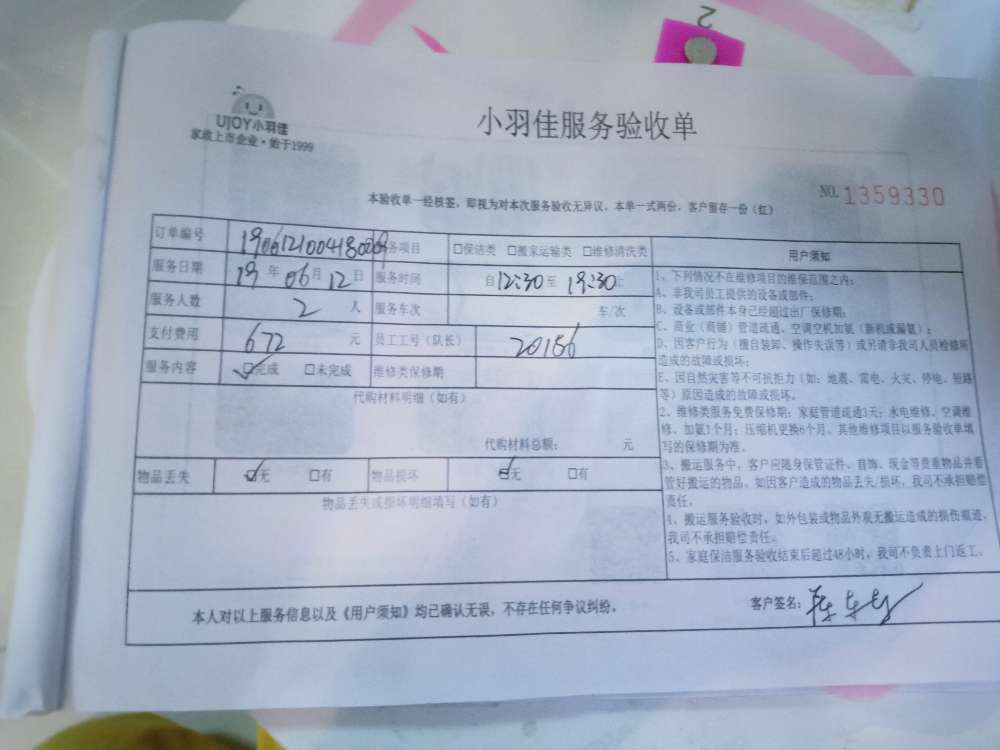 2
UJOY小羽佳
家政上市企业·始于1999
小羽佳服务验收单
NO. 1359330
本验收单一经核签，即视为对本次服务验收无异议，本单一式两份，客户留存一份（红）
订单编号 服务项目 □保洁类 □搬家运输类 □维修清洗类 用户须知
服务日期 19 年 06 月 12 日 服务时间 自 12:30 至 19:30 止
服务人数 2 人 服务车次 车/次
支付费用 672 元 员工工号（队长） 20156
服务内容 ☑完成 □未完成 维修类保修期
代购材料明细（如有）
代购材料总额： 元
物品丢失 ☑无 □有 物品损坏 ☑无 □有
物品丢失或损坏明细填写（如有）
1、下列情况不在维修项目的维保范围之内：
A、非我司员工提供的设备或部件；
B、设备或部件本身已经超过出厂保修期；
C、商业（商铺）管道疏通、空调空机加氨（新机或漏氨）；
D、因客户行为（擅自装卸、操作失误等）或另请非我司人员检修所
造成的故障或损坏；
E、因自然灾害等不可抗拒力（如：地震、雷电、火灾、停电、短路
等）原因造成的故障或损坏。
2、维修类服务免费保修期：家庭管道疏通3天；水电维修、空调维
修、加氨1个月；压缩机更换6个月。其他维修项目以服务验收单填
写的保修期为准。
3、搬运服务中，客户应随身保管证件、首饰、现金等贵重物品并看
管好搬运的物品。如因客户造成的物品丢失/损坏，我司不承担赔偿
责任。
4、搬运服务验收时，如外包装或物品外观无搬运造成的损伤痕迹，
我司不承担赔偿责任。
5、家庭保洁服务验收结束后超过48小时，我司不负责上门返工。
本人对以上服务信息以及《用户须知》均已确认无误，不存在任何争议纠纷。
客户签名：